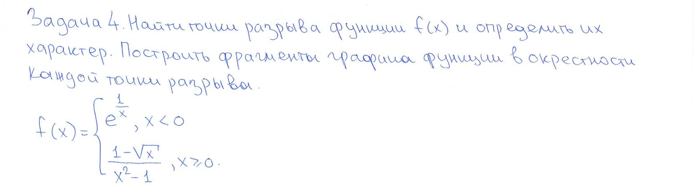 Задача 4. Найти точки разрыва функции f(x) и определить их
характер. Построить фрагменты графика функции в окрестности
каждой точки разрыва.
f(x) = { e^{1/x}, x < 0
(1-√x)/(x²-1), x ≥ 0.